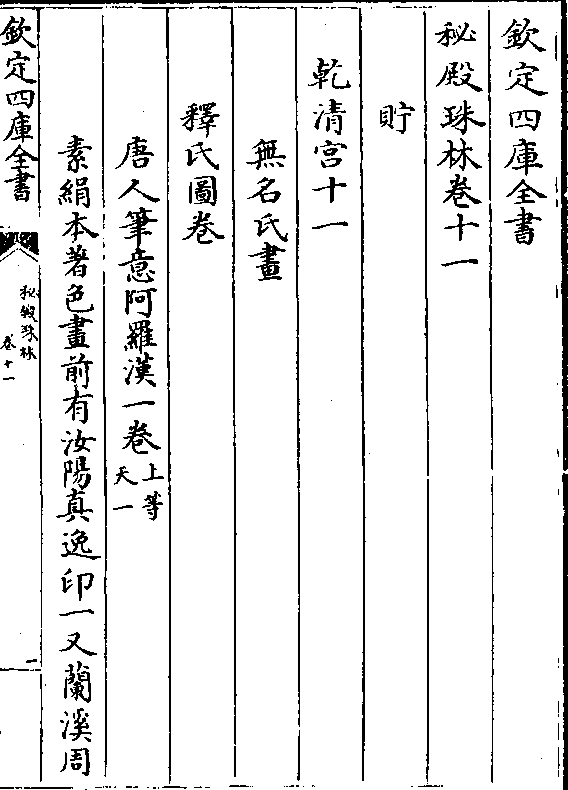 欽定四庫全書
秘殿珠林卷十一
貯
乾清宮十一
無名氏畫
釋氏圖卷
唐人筆意阿羅漢一卷上等天一
素絹本著色畫前有汝陽真逸印一又蘭溪周
欽定四庫全書
秘殿珠林
卷十一
一